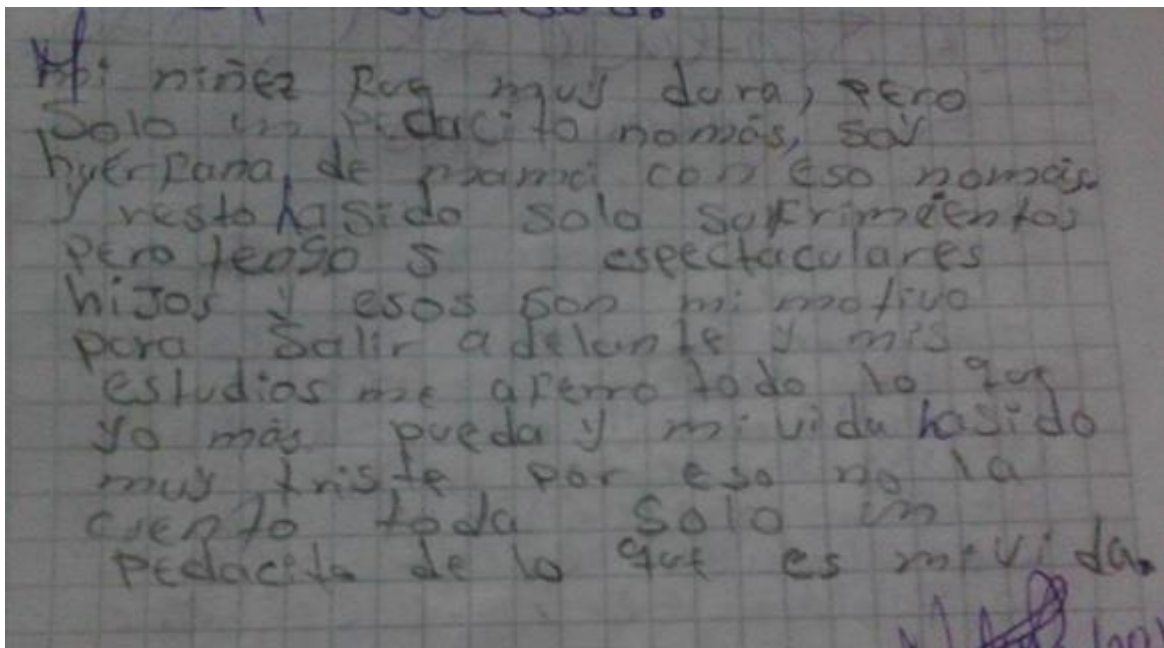 Mi niñez fue muy dura, pero
Solo un pedacito nomás, soy
hyerfana de mamá con eso nomás
y resto ha sido solo sufrimientos
pero tengo 5 espectaculares
hijos y esos son mi motivo
para salir adelante y mis
estudios me aferro todo lo que
yo más pueda y mi vida ha sido
muy triste por eso no la
ciento toda solo un
pedacito de lo que es mi vida.